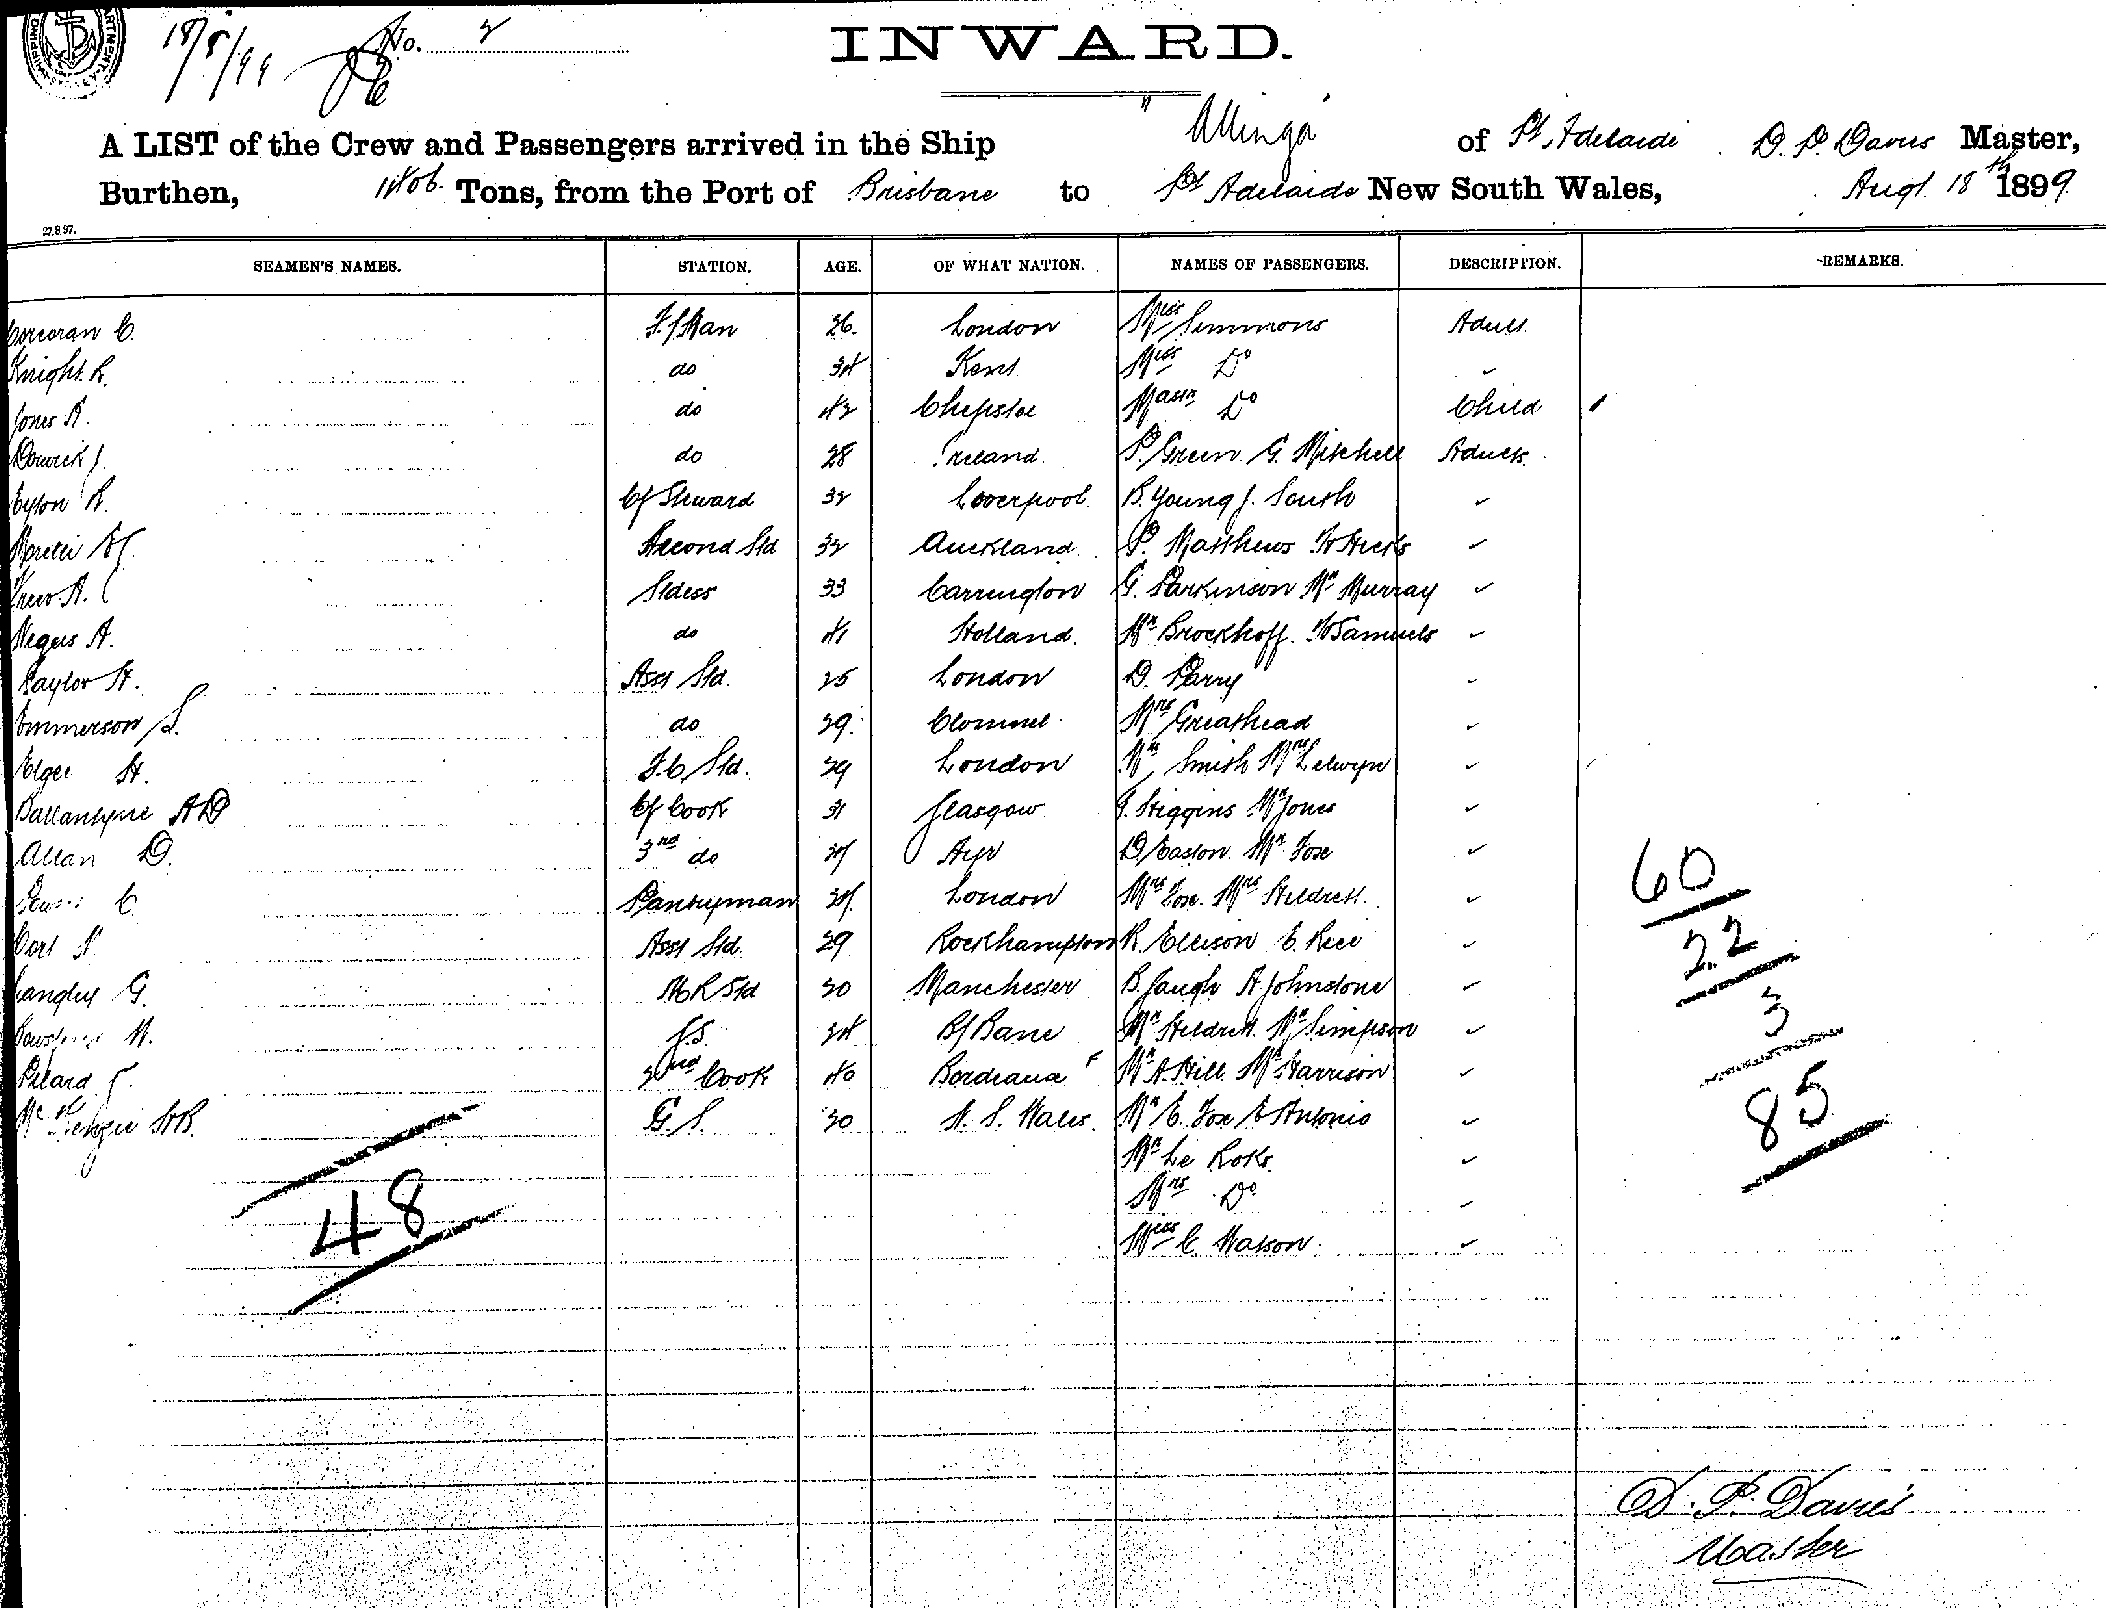 18/8/99 No. 2
INWARD.
A LIST of the Crew and Passengers arrived in the Ship "Allinga" of Pt. Adelaide D. P. Davies Master,
Burthen, Tons, from the Port of Brisbane to Pt Adelaide New South Wales, Augt 18th 1899
27.8.97.
SEAMEN'S NAMES. STATION. AGE. OF WHAT NATION. NAMES OF PASSENGERS. DESCRIPTION. REMARKS.
Corcoran C. F/Man 26. London Miss Simmons Adult
Knight R. do 34 Kent Miss Do ✓
Jones R. do 42 Chepstoe Mastr Do Child
do 28 Ireland. P. Green G. Mitchell Adults.
Cf Steward 32 Loverpool B. Young J. South ✓
Second Std 32 Auckland. P. Matthews W Hicks ✓
Stdess 33 Carrington G. Parkinson Mr Murray ✓
Negus A. do 41 Holland. Mr Brockhoff. W Samuels ✓
Taylor H. Asst Std. 25 London D. Parry ✓
Emmerson S. do 29. Clonmel. Mrs Greathead ✓
Elgee H. F.C. Std. 29 London Mr Smith Mrs Selwyn ✓
Ballantyne A D Cf Cook 31 Glasgow G. Higgins Mr Jones ✓
Allan D. 3rd do Ayr D. Easton Mr Fox ✓
C Pantryman London Mrs Fox. Mrs Hildrett. ✓
Asst Std. 29 Rockhampton R. Ellison E. Rice ✓
Langley G. M R Std 30 Manchester B. Gaugh A Johnstone ✓
M. 34 Mr Hildrett Mr Simpson ✓
2nd Cook 40 Mr A. Hill Mr Harrison ✓
McKenzie H B. G. S. 30 N. S. Wales. Mr E. Fox E Antonio ✓
Mr Le Roks. ✓
Mrs Do ✓
Miss C. Watson. ✓
48
60
22
3
85
D. P. Davies
Master